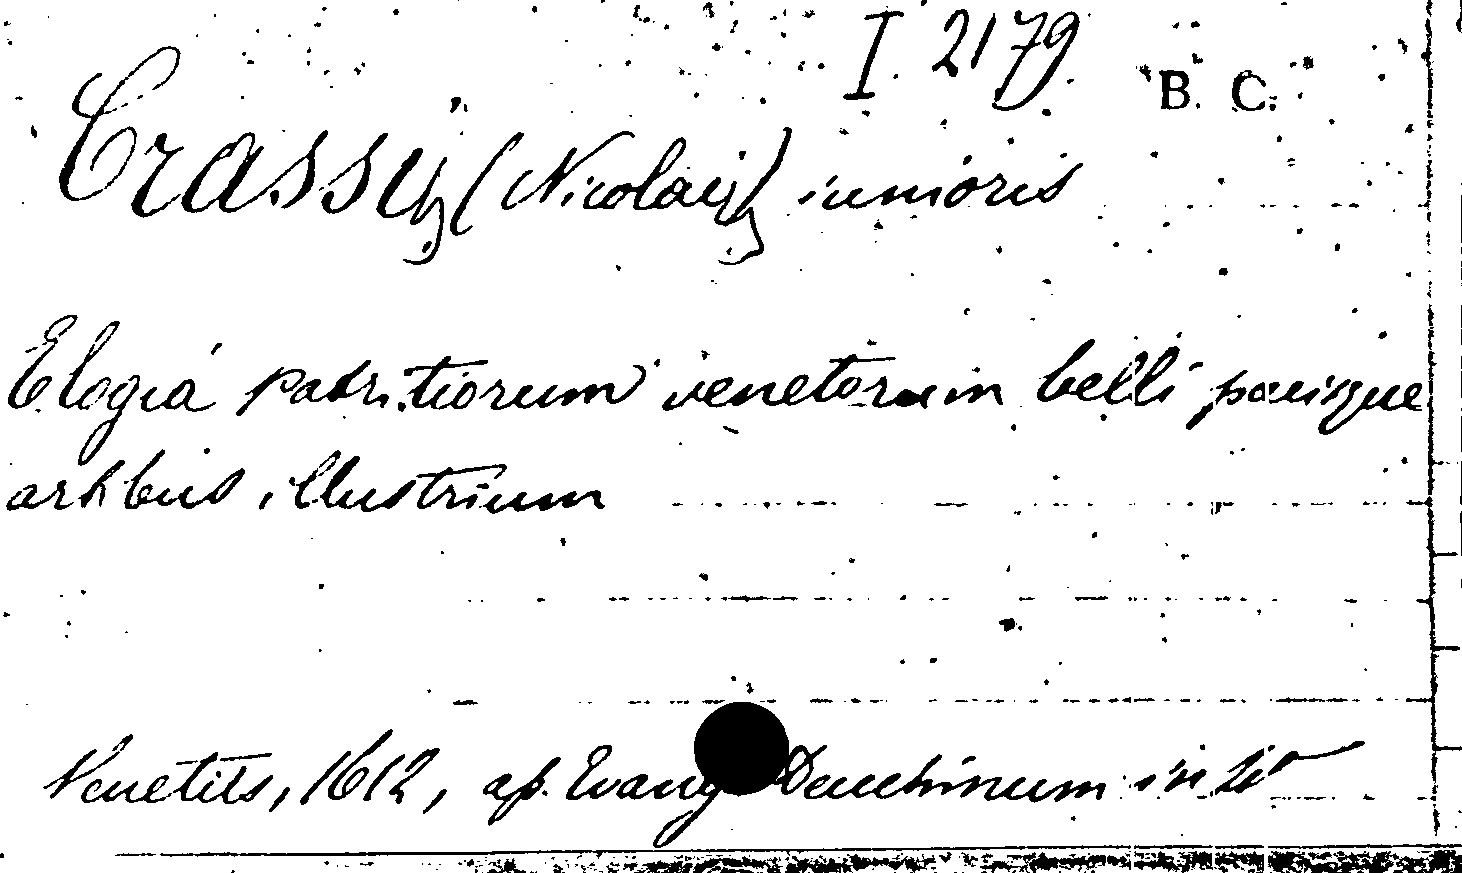 I 2179
B. C.
Crassij (Nicolaij) iunioris
Elogia patritiorum venetorum belli pacisque
artibus illustrium
Venetiis, 1612, ap. Evang Deuchinum in 4º